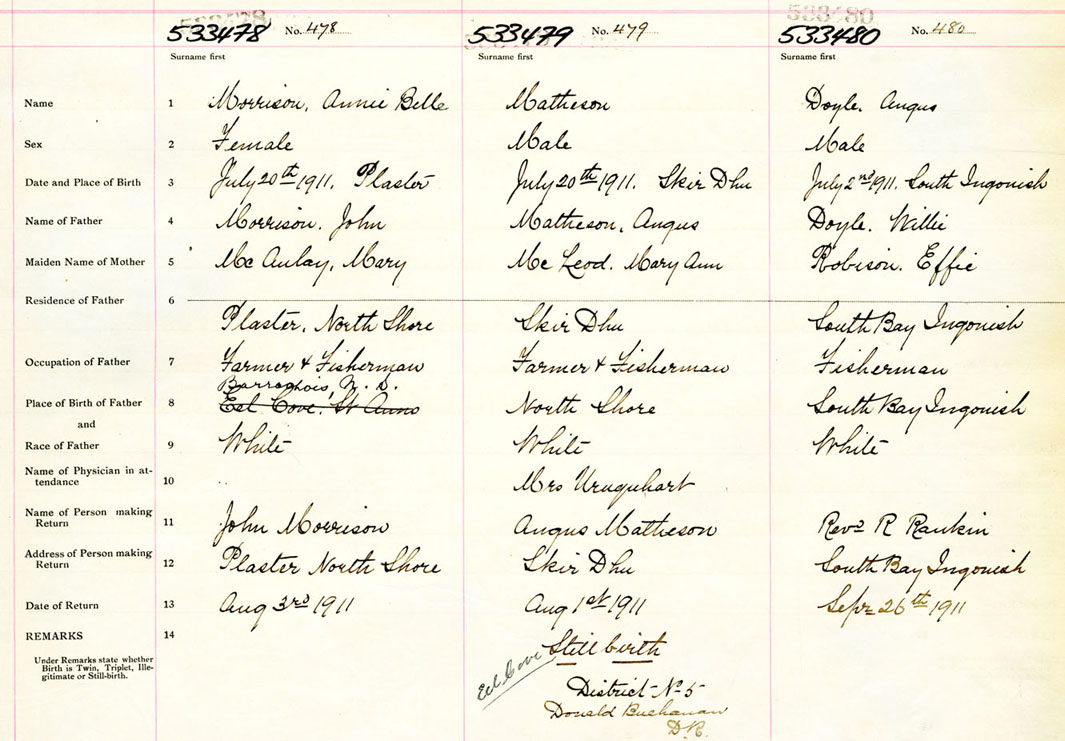 533478 No. 478 533479 No. 479 533480 No. 480
Surname first Surname first Surname first
Name 1 Morrison, Annie Belle Matheson Doyle. Angus
Sex 2 Female Male Male
Date and Place of Birth 3 July 20th 1911. Plaster July 20th 1911. Skir Dhu July 2nd 1911. South Ingonish
Name of Father 4 Morrison. John Matheson, Angus Doyle. Willie
Maiden Name of Mother 5 Mc Aulay, Mary Mc Leod. Mary Ann Robison. Effie
Residence of Father 6
Plaster, North Shore Skir Dhu South Bay Ingonish
Occupation of Father 7 Farmer & Fisherman Farmer & Fisherman Fisherman
Barrachois, N. D.
Place of Birth of Father 8 Eel Cove. St Anns North Shore South Bay Ingonish
and
Race of Father 9 White White White
Name of Physician in at-
tendance 10 Mrs Uruquhart
Name of Person making
Return 11 John Morrison Angus Matheson Revd R Rankin
Address of Person making
Return 12 Plaster North Shore Skir Dhu South Bay Ingonish
Date of Return 13 Aug 3rd 1911 Aug 1st 1911 Sepr 26th 1911
REMARKS 14 Still birth
Under Remarks state whether
Birth is Twin, Triplet, Ille-
gitimate or Still-birth.
Eel Cove
District No 5
Donald Buchanan
D.R.